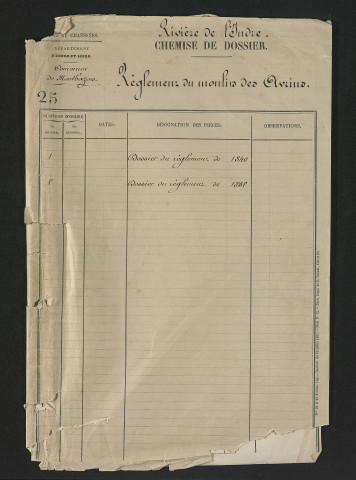 Rivière de l'Indre.
CHEMISE DE DOSSIER.
ET CHAUSSÉES.
DÉPARTEMENT
D'INDRE-ET-LOIRE
Commune
de Montbazon
Règlement du moulin des Avrins.
25
NUMÉROS D'ORDRE
DATES.
DÉSIGNATION DES PIÈCES.
OBSERVATIONS.
1 Dossier du règlement de 1840
Dossier du règlement de